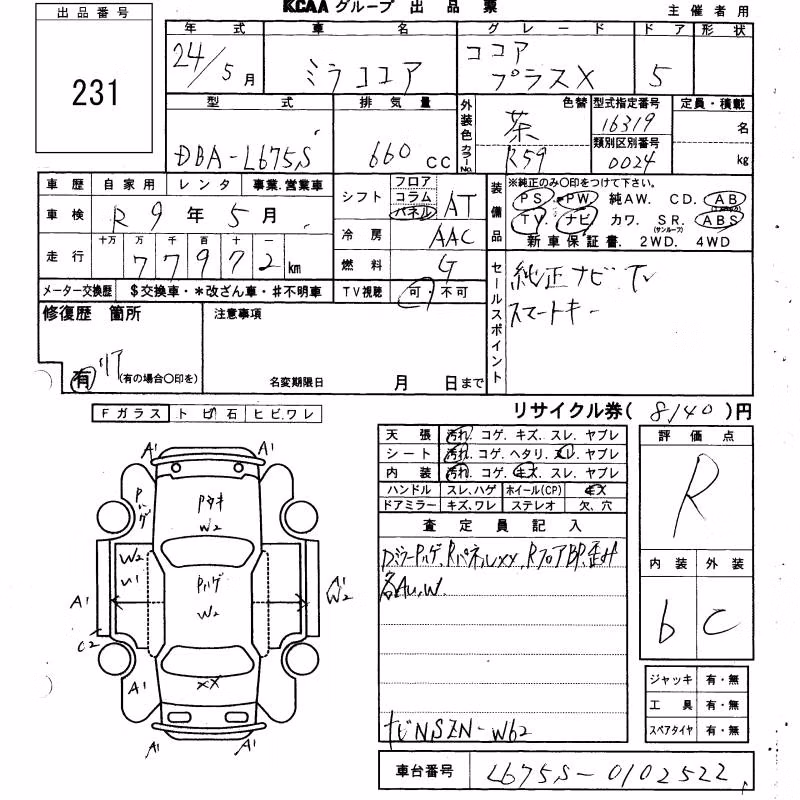 KCAA グループ 出 品 票
主 催 者 用
出 品 番 号
231
年 式 車 名 グ レ ー ド ド ア 形 状
24/5月 ミラココア ココア プラスX 5
型 式 排 気 量 外装色 カラーNo. 色替 型式指定番号 定員・積載
DBA-L675S 660 cc 茶 R59 16319 名
類別区別番号
0024 kg
車 歴 自 家 用 レ ン タ 事業.営業車
車 検 R 9 年 5 月
走 行 十万 万 千 百 十 一
7 7 9 7 2 km
メーター交換歴 $交換車・*改ざん車・#不明車
シフト フロア コラム パネル AT
冷 房 AAC
燃 料 G
TV視聴 可・不可
装備品 ※純正のみ〇印をつけて下さい。
PS. PW. 純AW. CD. AB
TV. ナビ カワ. SR.(サンルーフ) ABS
新 車 保 証 書. 2WD. 4WD
セールスポイント
純正ナビ TV
スマートキー
修復歴 箇所
有 リア (有の場合〇印を)
注意事項
名変期限日 月 日まで
リサイクル券( 8140 )円
Fガラス ト ビ 石 ヒビ.ワレ
天 張 汚れ. コゲ. キズ. スレ. ヤブレ
シート 汚れ. コゲ. ヘタリ. スレ. ヤブレ
内 装 汚れ. コゲ. キズ. スレ. ヤブレ
ハンドル スレ.ハゲ ホイール(CP) キズ
ドアミラー キズ.ワレ ステレオ 欠. 穴
査 定 員 記 入
Dミラーハゲ、RパネルXX、RフロアBP、歪み
各A.u.W.
ナビNSZN-W62
評 価 点
R
内 装 外 装
b C
ジャッキ 有・無
工 具 有・無
スペアタイヤ 有・無
車台番号 L675S-0102522
A1 A1
Pハゲ
Pヌキ
W2
W2
U1
Pハゲ
W2
A1
A1
W2
C2
XX
A1 A1
A1 A1